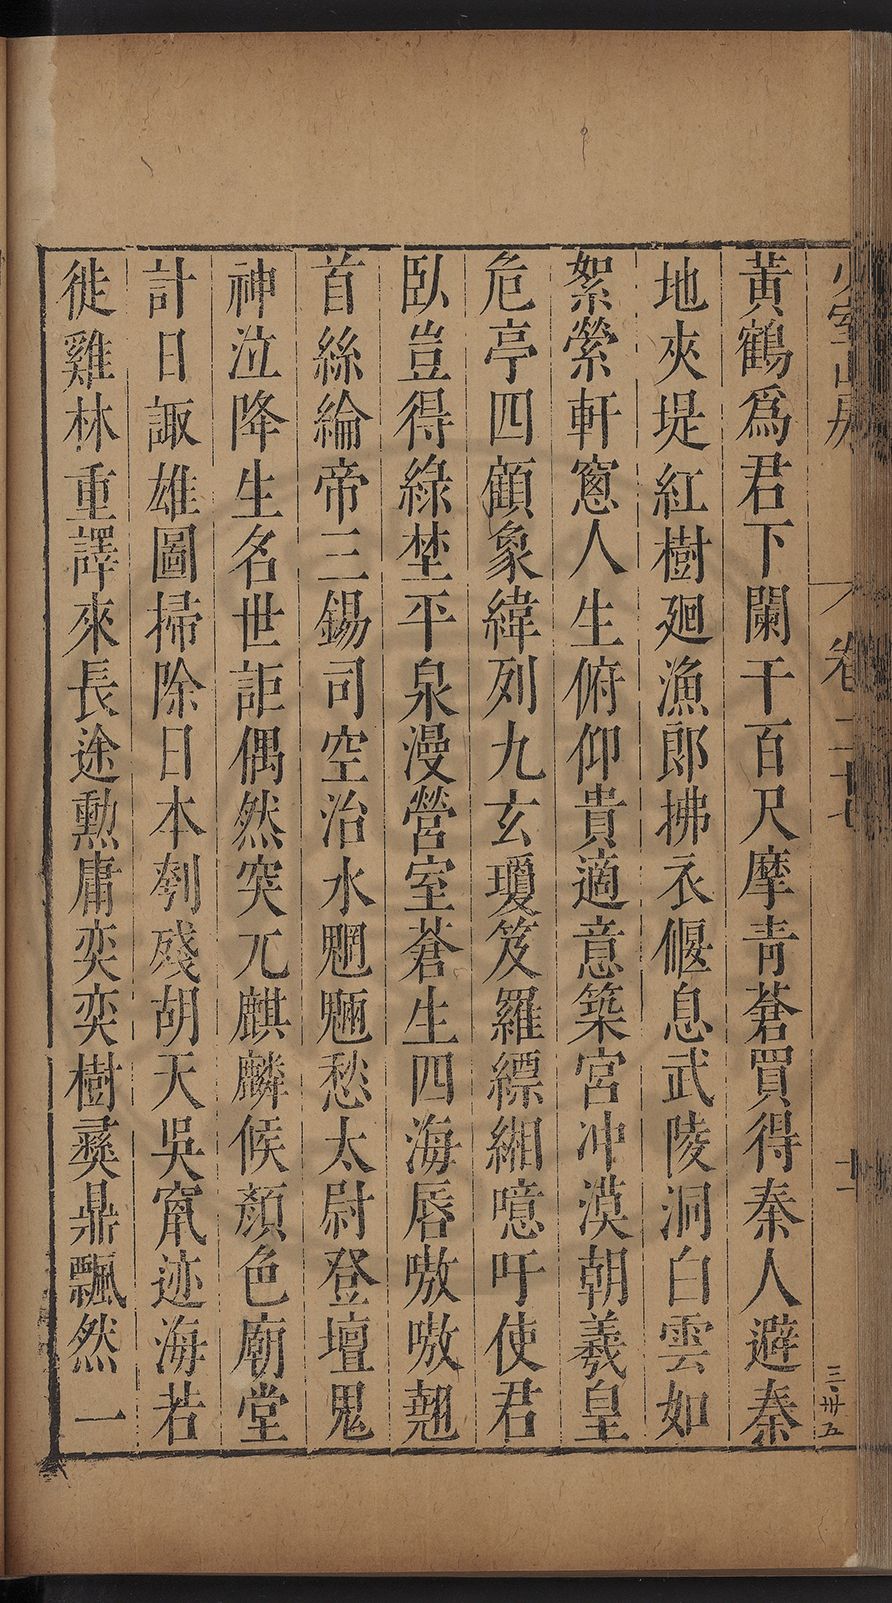 少室山房
卷二十七
十一
三卅五
黃鶴爲君下闌干百尺摩青蒼買得秦人避秦
地夾堤紅樹廻漁郎拂衣偃息武陵洞白雲如
絮縈軒窻人生俯仰貴適意築宮冲漠朝羲皇
危亭四顧象緯列九玄瓊笈羅縹緗噫吁使君
臥豈得綠埜平泉漫營室蒼生四海唇嗷嗷翹
首絲綸帝三錫司空治水魍魎愁太尉登壇鬼
神泣降生名世詎偶然突兀麒麟候顏色廟堂
計日諏雄圖掃除日本刳殘胡天吳竄迹海若
徙雞林重譯來長途勳庸奕奕樹彞鼎飄然一